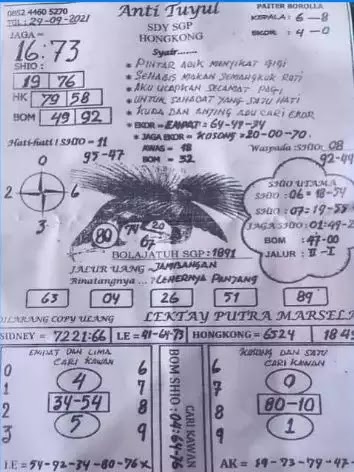 0852 4460 5270
TGL: 24-09-2021
Anti Tuyul
SDY SGP
HONGKONG
PAITER BOROLLA
KEPALA : 6 - 8
EKOR : 4 - 0
JAGA =
16:73
SHIO :
19 76
HK 79 58
BOM 49 92
Syair......
* PINTAR ADIK MENYIKAT GIGI
* SEHABIS MAKAN SEMANGKUK ROTI
* AKU UCAPKAN SELAMAT PAGI
* UNTUK SAHABAT YANG SATU HATI
* KUDA DAN ANJING ADU CARI EKOR
* EKOR = EMPAT = 64-49-34
* JAGA EKOR = KOSONG = 20-00-70.
AWAS = 18
BOM = 32
Hati-hati! SHIO = 11
95-47
Waspada :SHIO: 08
92-44
0
2
6
3
80
74
20
67
SHIO UTAMA
SHIO : 06 = 18-54
SHIO : 07 = 19-55
JAGA SHIO : 01:49-2
BOM : 47-00
JALUR : II - I
BOLAJATUH SGP : 1891
JALUR UANG = JAMBANGAN
Binatangnya ... : LEHERNYA PANJANG
63 04 26 51 89
DILARANG COPY ULANG
LEKTAY PUTRA MARSEL
SIDNEY = 7221:66
LE = 41-64-73
HONGKONG = 6524
18 4
EMPAT DAN LIMA
CARI KAWAN
0 6
1 7
2 8
3 9
4
34-54
5
I.E = 54-92-34-80-76 x
BOM SHIO : 04:64-76
CARI KAWAN
KOSONG DAN SATU
CARI KAWAN
6
7
8
9
0
80-10
1
AK = 19-73-79-47-